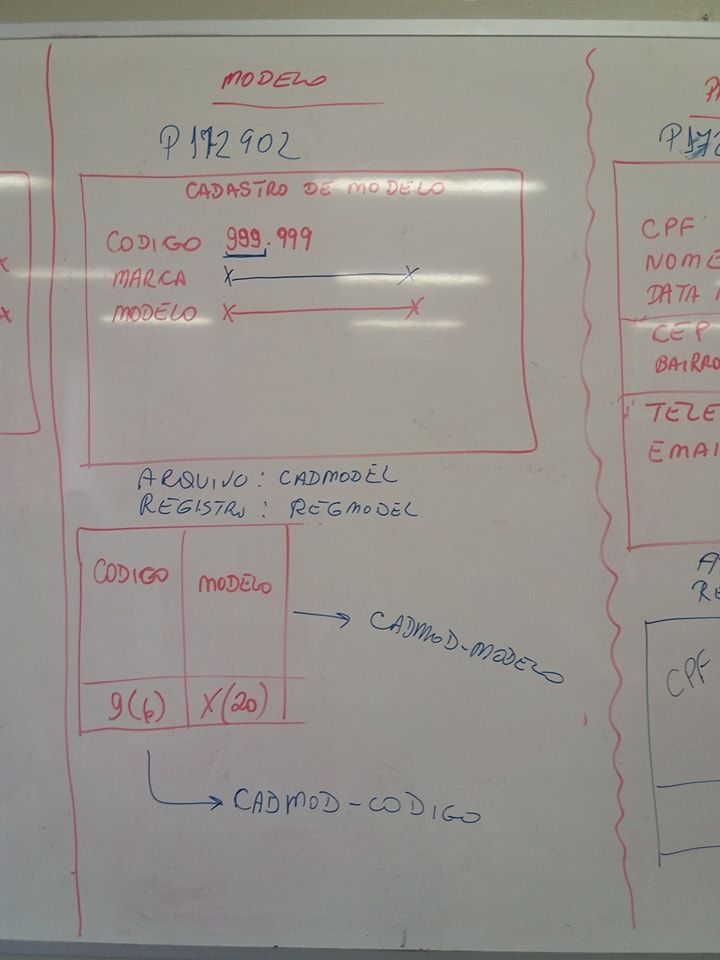 MODELO
P172902
CADASTRO DE MODELO
CODIGO 999.999
MARCA X X
MODELO X X
ARQUIVO: CADMODEL
REGISTRO: REGMODEL
CODIGO MODELO
9(6) X(20)
CADMOD-MODELO
CADMOD-CODIGO
P172
CPF
NOME
DATA
CEP
BAIRRO
TELE
EMAI
RE
CPF